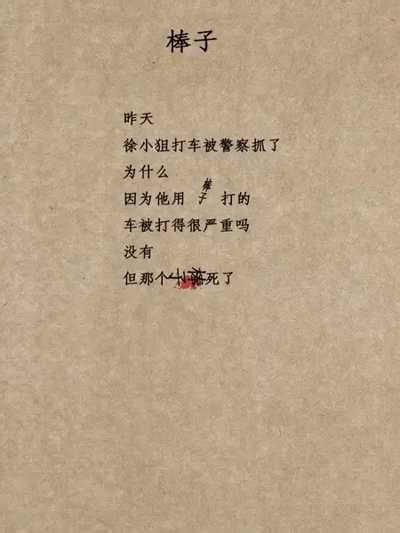 棒子
昨天
徐小狙打车被警察抓了
为什么
因为他用 棒子 打的
车被打得很严重吗
没有
但那个棒子死了